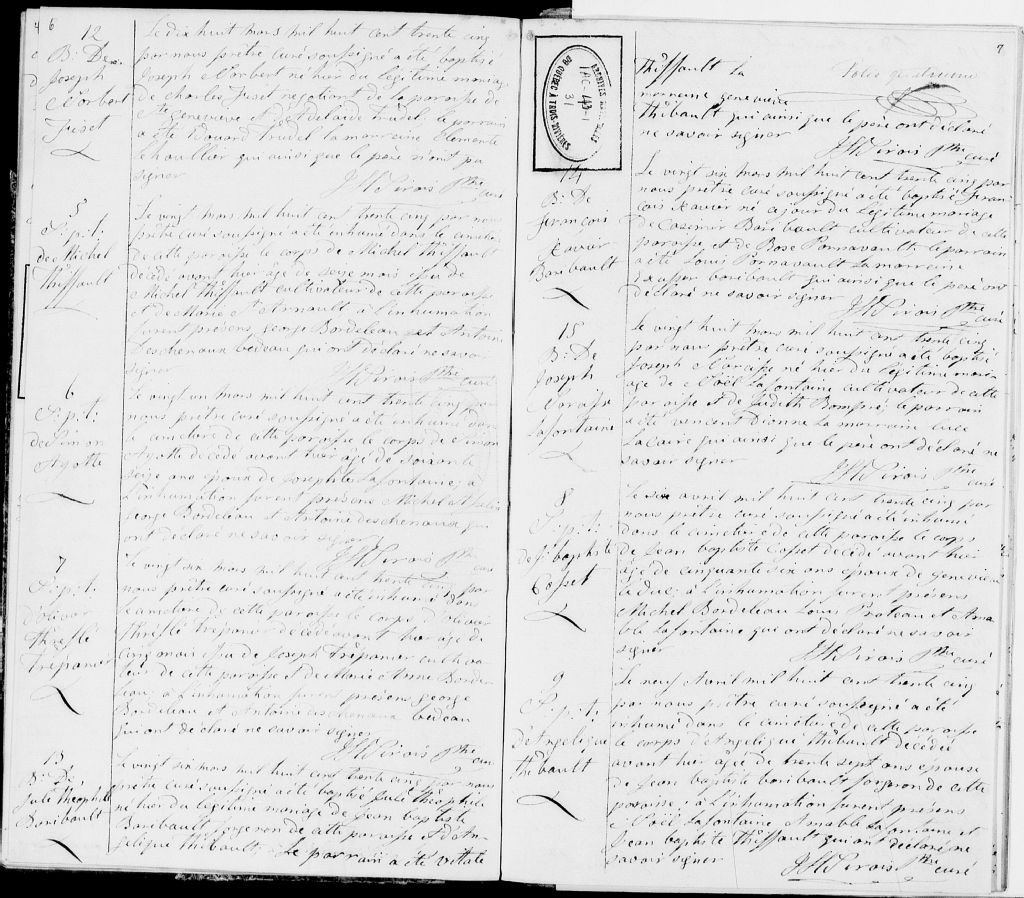 6
12
B: De
Joseph
Norbert
Fiset
Le dix huit mars mil huit cent trente cinq
par nous prêtre curé soussigné a été baptisé
Joseph Norbert né hier du légitime mariage
de Charles Fiset négotiant de la paroisse de
Ste Geneviève et d'Adelaide Trudel le parrain
a été Edouard Trudel la marraine Clemente
Lhoullier qui ainsi que le père n'ont pu
signer
Ptre curé
5
S:p:t:
de Michel
Thiffault
Le vingt mars mil huit cent trente cinq par nous
prêtre curé soussigné a été inhumé dans le cimetière
de cette paroisse le corps de Michel Thiffault
décédé avant hier agé de seize mois issu de
Michel Thiffault cultivateur de cette paroisse
et de Marie St Arnault à l'inhumation
furent présens George Bordeleau et Antoine
Deschenaux bedeau qui ont déclaré ne savoir
signer
Ptre curé
6
S:p:t:
de Simon
Ayotte
Le vingt un mars mil huit cent trente cinq par
nous prêtre curé soussigné a été inhumé dans
le cimetière de cette paroisse le corps de Simon
Ayotte décédé avant hier agé de soixante
seize ans époux de Josephte Lafontaine; à
l'inhumation furent présens Michel
George Bordeleau et Antoine Deschenaux qui
ont déclaré ne savoir signer
Ptre curé
7
S:p:t:
d'Olivier
Thréflé
Trépanier
Le vingt six mars mil huit cent trente cinq par
nous prêtre curé soussigné a été inhumé dans
le cimetière de cette paroisse le corps d'Olivier
Thréflé Trépanier décédé avant hier agé de
cinq mois issu de Joseph Trépanier cultiva
teur de cette paroisse et de Marie Anne Borde
leau; à l'inhumation furent présens George
Bordeleau et Antoine Deschenaux bedeau
qui ont déclaré ne savoir signer
Ptre curé
13
B: De
Julie Théophile
Baribault
Le vingt six mars mil huit cent trente cinq par nous
prêtre curé soussigné a été baptisé Julie Théophile
né hier du légitime mariage de Jean Baptiste
Baribault forgeron de cette paroisse et d'An
gelique Thibault, Le parrain a été
7
ARCHIVES NATIONALES
DU QUÉBEC À TROIS-RIVIÈRES
31
Thiffault la
marraine Geneviève
Thibault qui ainsi que le père ont déclaré
ne savoir signer
Ptre curé
14
B: De
François
Xavier
Baribault
Le vingt six mars mil huit cent trente cinq par
nous prêtre curé soussigné a été baptisé Fran
çois Xavier né ce jour du légitime mariage
de Casemir Baribault cultivateur de cette
paroisse et de Rose le parrain
a été Louis la marraine
Exupère Baribault qui ainsi que le père ont
déclaré ne savoir signer
Ptre curé
15
B: De
Joseph
Narcisse
Lafontaine
Le vingt huit mars mil huit cent trente cinq
par nous prêtre curé soussigné a été baptisé
Joseph Narcisse né hier du légitime mari
age de Noël Lafontaine cultivateur de cette
paroisse et de Judith Bompré; le parrain
a été Vencent Dionne la marraine Luce
Lacaire qui ainsi que le père ont déclaré ne
savoir signer
Ptre curé
8
S:p:t:
de Jn baptiste
Cosset
Le six avril mil huit cent trente cinq par
nous prêtre curé soussigné a été inhumé
dans le cimetière de cette paroisse le corps
de Jean baptiste Cosset décédé avant hier
agé de cinquante six ans époux de Geneviève
Leduc; à l'inhumation furent présens
Michel Bordeleau Louis Bateau et Ama
ble Lafontaine qui ont déclaré ne savoir
signer
Ptre curé
9
S:p:t:
D'Angelique
Thibault
Le neuf Avril mil huit cent trente cinq
par nous prêtre curé soussigné a été
inhumé dans le cimétière de cette paroisse
le corps d'Angelique Thibault décédée
avant hier agé de trente sept ans épouse
de Jean baptiste baribault forgeron de cette
paroisse; à l'inhumation furent présens
Noël Lafontaine Amable Lafontaine et
Jean baptiste Thiffault qui ont déclaré ne
savoir signer
Ptre curé